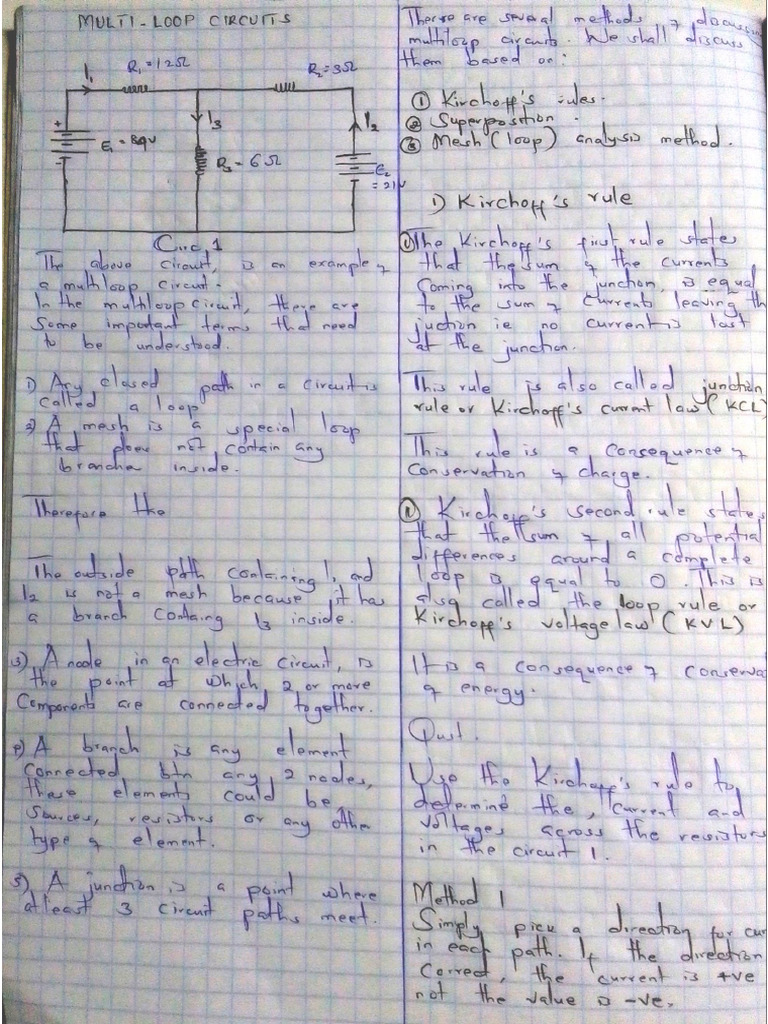 MULTI-LOOP CIRCUITS
R₁=12Ω
R₂=3Ω
I₁
I₃
I₂
E₁ = 84V
R₃ = 6Ω
E₂
= 21V
Circ 1
The above circuit, is an example of
a multiloop circuit.
In the multiloop circuit, there are
Some important terms that need
to be understood.
1) Any closed path in a circuit is
called a loop
2) A mesh is a special loop
that does not contain any
branche inside.
Therefore the
The outside path containing I₁ and
I₂ is not a mesh because it has
a branch containg I₃ inside.
3) A node in an electric circuit, is
the point at which 2 or more
Components are connected together.
A branch is any element
connected btn any 2 nodes,
these elements could be
sources, resistors or any other
type of element.
5) A junction is a point where
atleast 3 circuit paths meet.
There are several methods of
multiloop circuits. We shall discuss
them based on:
① Kirchoff's rules.
② Superposition.
③ Mesh (loop) analysis method.
1) Kirchoff's rule
The Kirchoff's first rule states
that the sum of the currents
Coming into the junction, is equal
to the sum of currents leaving th
juction ie no current is lost
at the junction.
This rule is also called junction
rule or Kirchoff's current law (KCL)
This rule is a consequence of
Conservation of charge.
Kirchoff's second rule states
that the sum of all potential
differences around a complete
loop is equal to 0. This is
also called the loop rule or
Kirchoff's voltage law (KVL)
It is a consequence of conserva
of energy.
Qust.
Use the Kirchoff's rule to
determine the current and
voltages across the resistors
in the circuit 1.
Method 1
Simply pick a direction for cur
in each path. If the direction
Correct, the current is +ve
not the value is -ve.